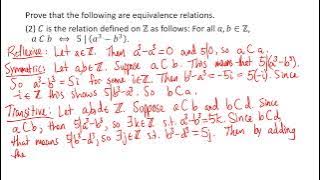 Prove that the following are equivalence relations.
(2) C is the relation defined on ℤ as follows: For all a, b ∈ ℤ,
a C b ⟺ 5 | (a³ − b³).
Reflexive: Let a∈ℤ. Then a³-a³=0 and 5|0, so aCa.
Symmetric: Let a,b∈ℤ. Suppose aCb. This means that 5|(a³-b³).
So a³-b³=5i for some i∈ℤ. Then b³-a³=-5i=5(-i). Since
-i∈ℤ this shows 5|b³-a³. So bCa.
Transitive: Let a,b,d∈ℤ. Suppose aCb and bCd. Since
aCb, then 5|a³-b³, so ∃k∈ℤ s.t. a³-b³=5k. Since bCd,
that means 5|b³-d³, so ∃j∈ℤ s.t. b³-d³=5j. Then by adding
the